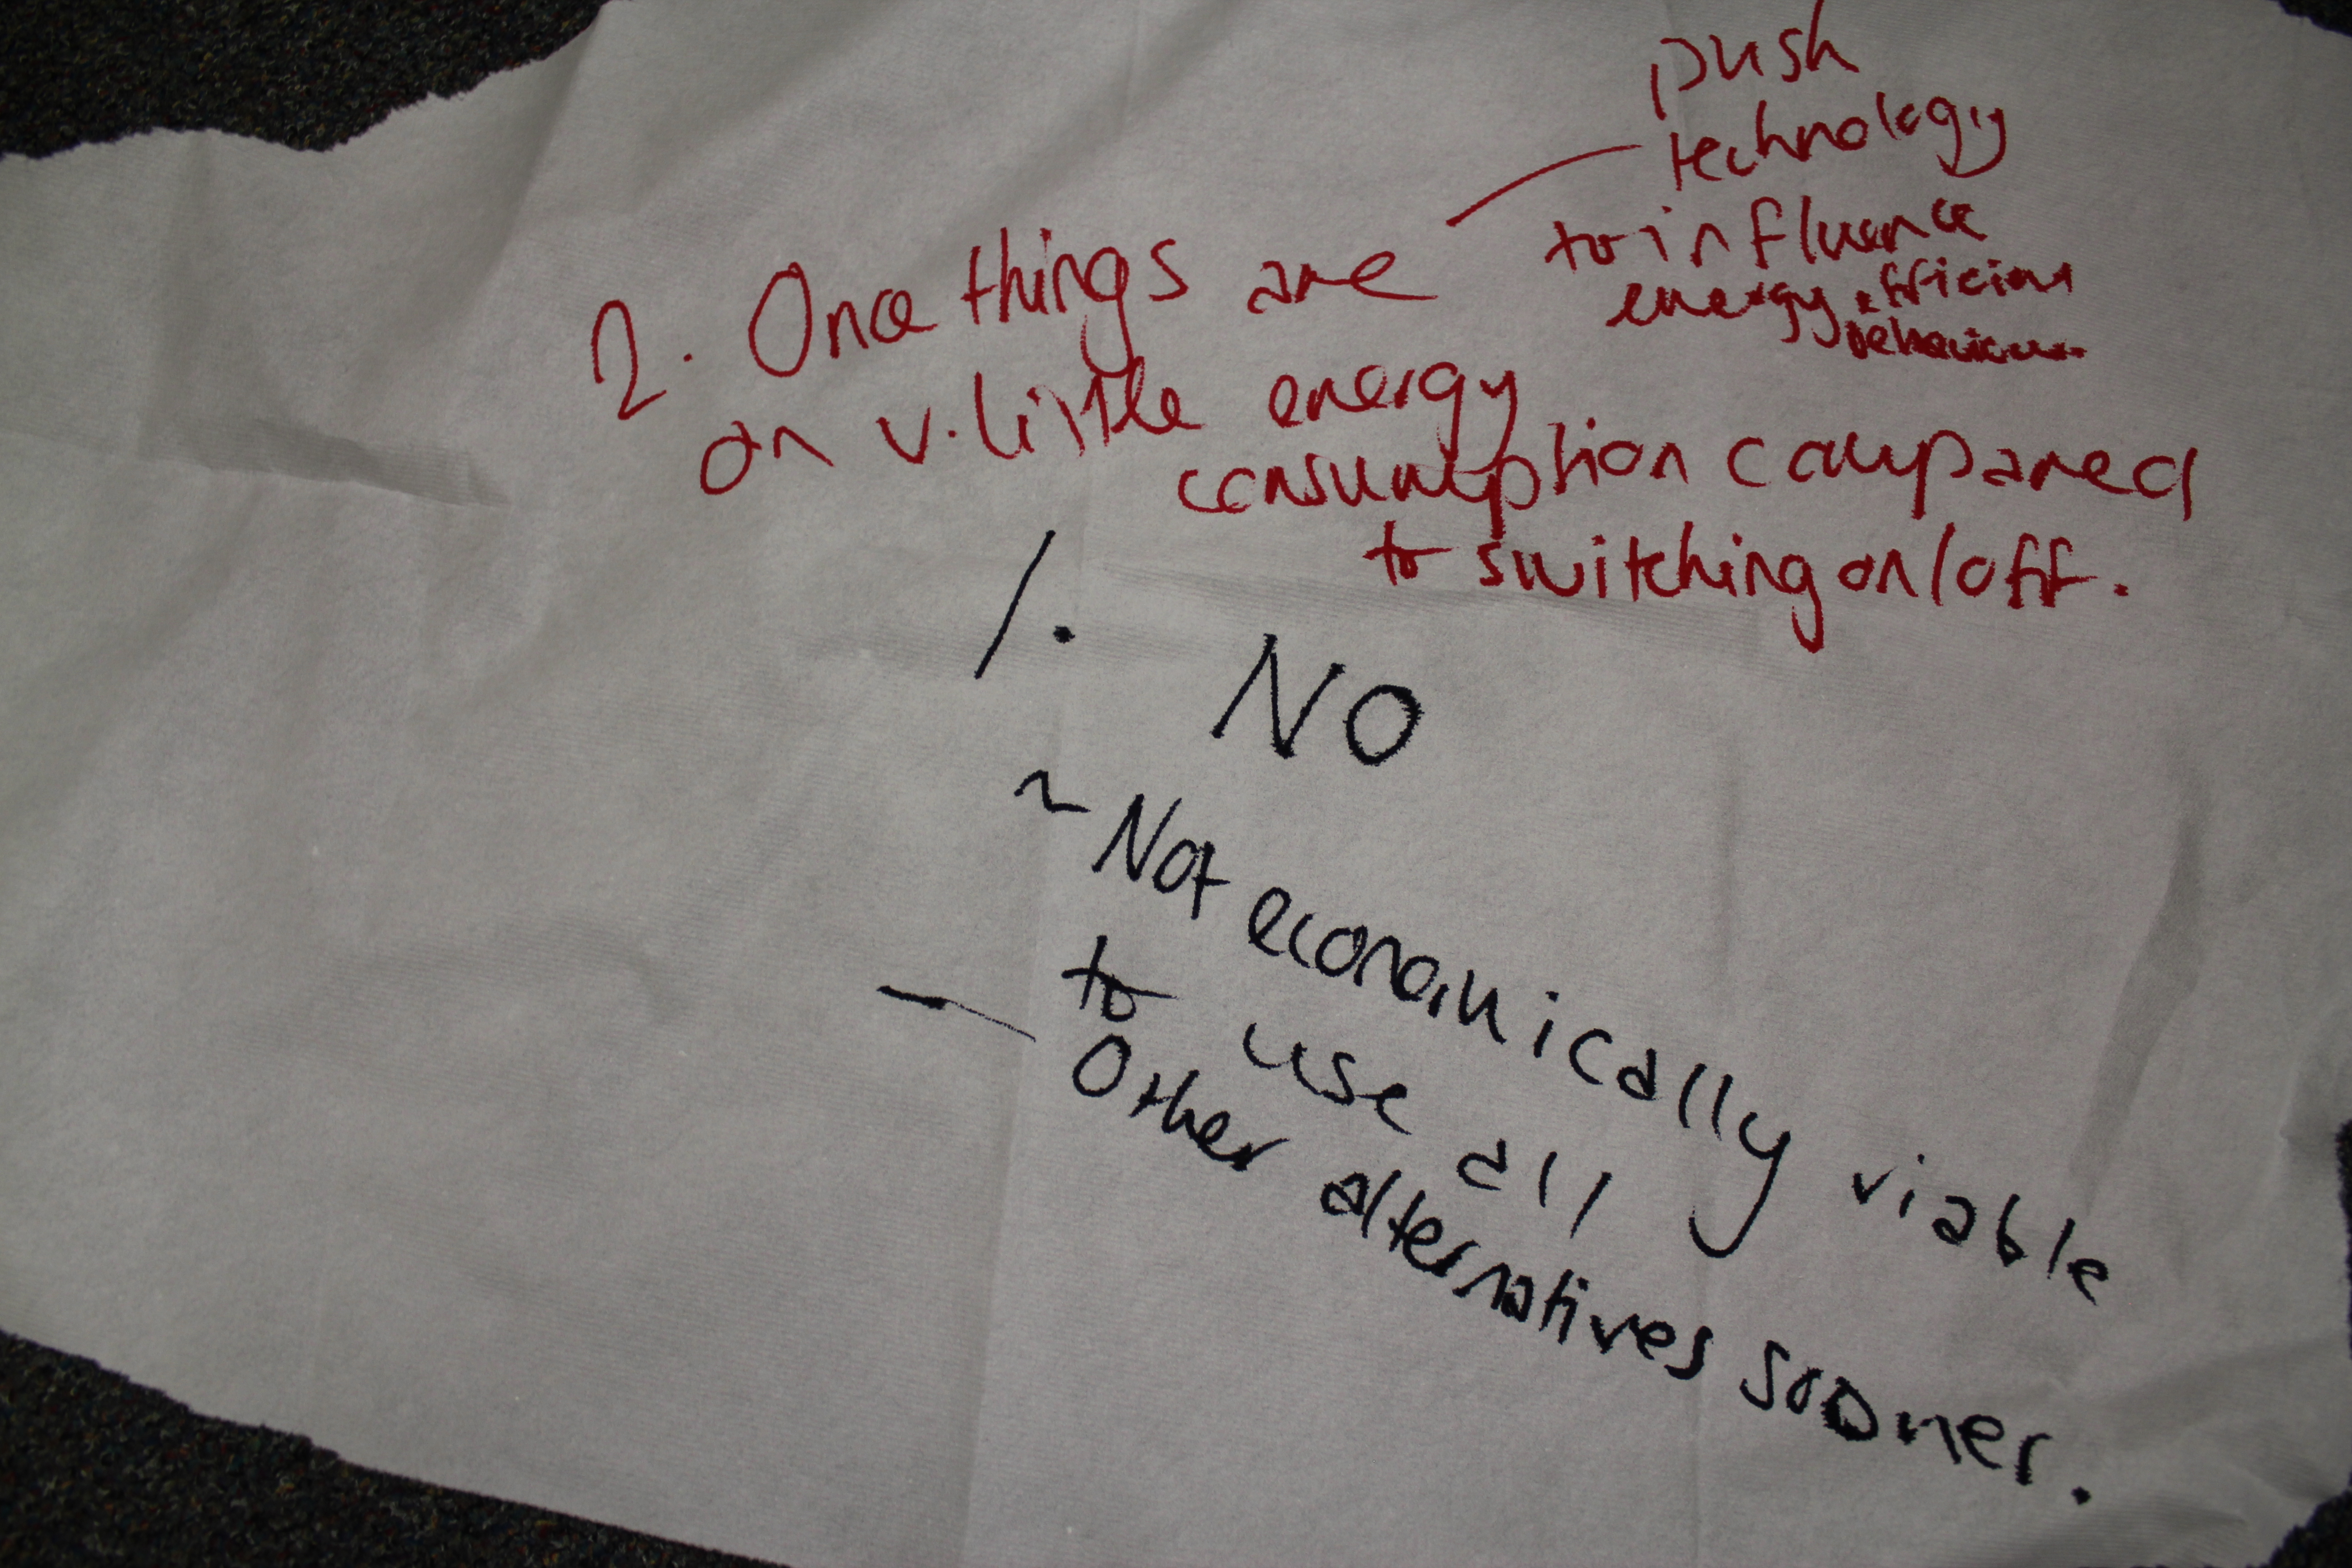 push
technology
to influence
energy efficient
behaviour
2. Once things are
on v. little energy
consumption compared
to switching on/off.
1. NO
~ Not economically viable
to use all
— Other alternatives sooner.